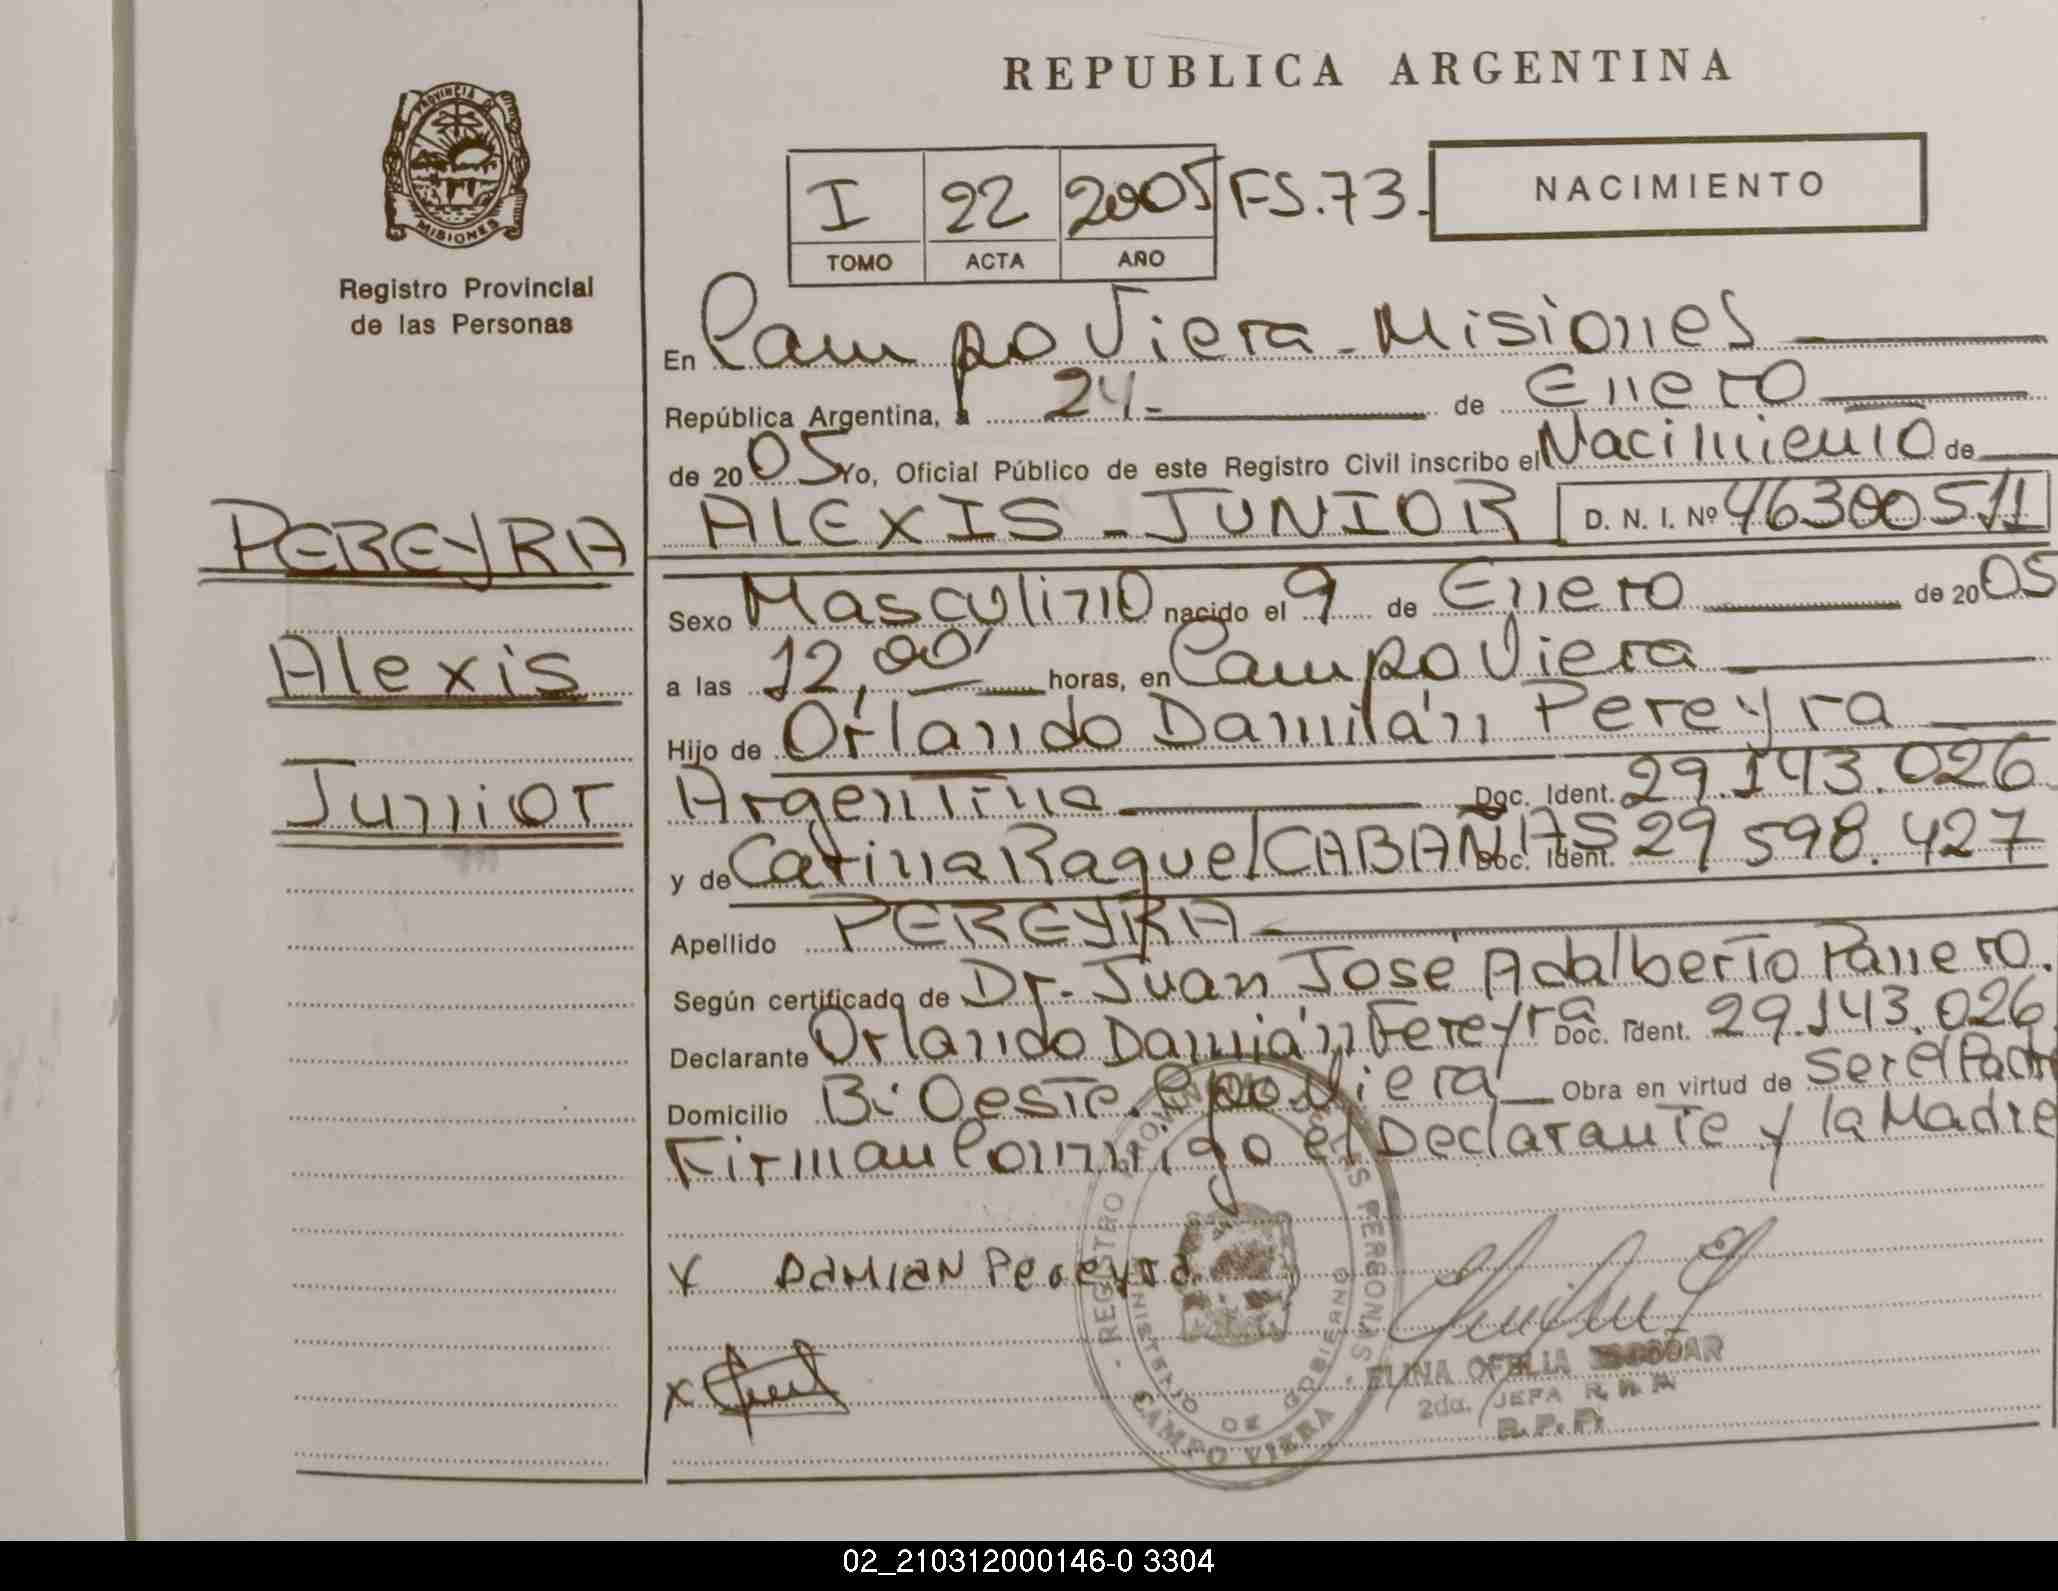 REPUBLICA ARGENTINA
PROVINCIA DE
MISIONES
Registro Provincial
de las Personas
I 22 2005 FS.73.
TOMO ACTA AÑO
NACIMIENTO
En Campo Viera - Misiones
República Argentina, a 24 - de Enero
de 2005 Yo, Oficial Público de este Registro Civil inscribo el Nacimiento de
ALEXIS - JUNIOR D. N. I. Nº 46300511
PEREYRA
Alexis
Junior
Sexo Masculino nacido el 9 de Enero de 2005
a las 12,00' horas, en Campo Viera
Hijo de Orlando Damián Pereyra
Argentina Doc. Ident. 29.143.026
y de Carina Raquel CABAÑAS Doc. Ident. 29 598.427
Apellido PEREYRA
Según certificado de Dr. Juan José Adalberto Panero.
Declarante Orlando Damián Pereyra Doc. Ident. 29.143.026
Domicilio B: Oeste. Cpo Viera Obra en virtud de Ser el Padre
Firman Conmigo el Declarante y la Madre
X DAMIAN Pereyra
X
REGISTRO PROVINCIAL DE LAS PERSONAS
MINISTERIO DE GOBIERNO
CAMPO VIERA
ELINA OFELIA
2da. JEFA
R.P.P.
02_210312000146-0 3304